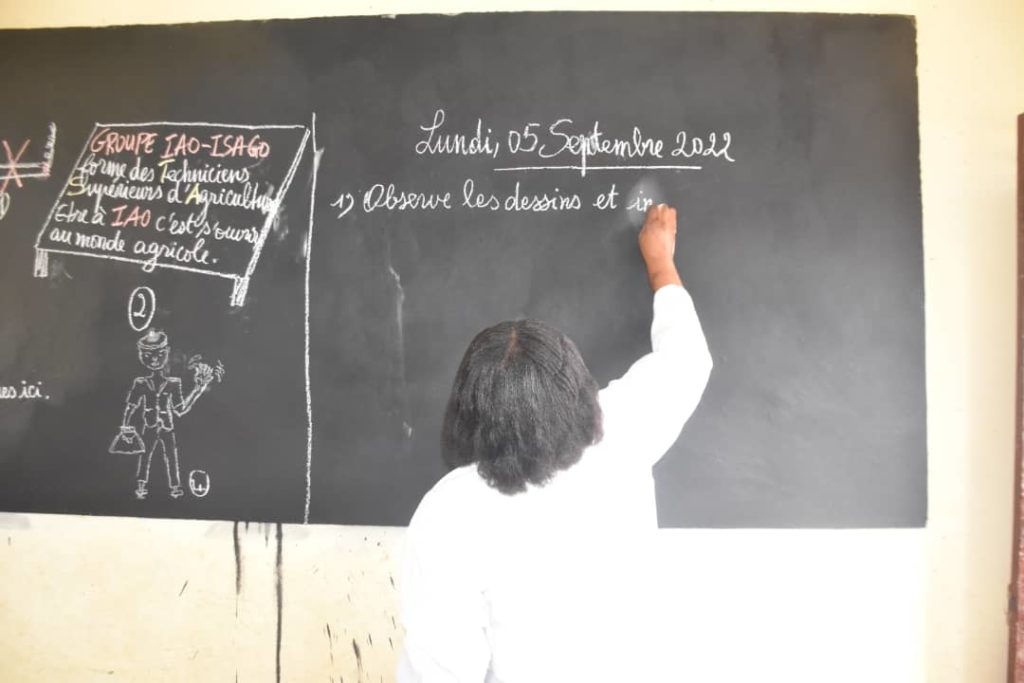 GROUPE IAO-ISAGO
forme des Techniciens
Supérieurs d'Agriculture
Etre à IAO c'est s'ouvrir
au monde agricole.
2
ici.
Lundi, 05 Septembre 2022
1) Observe les dessins et in